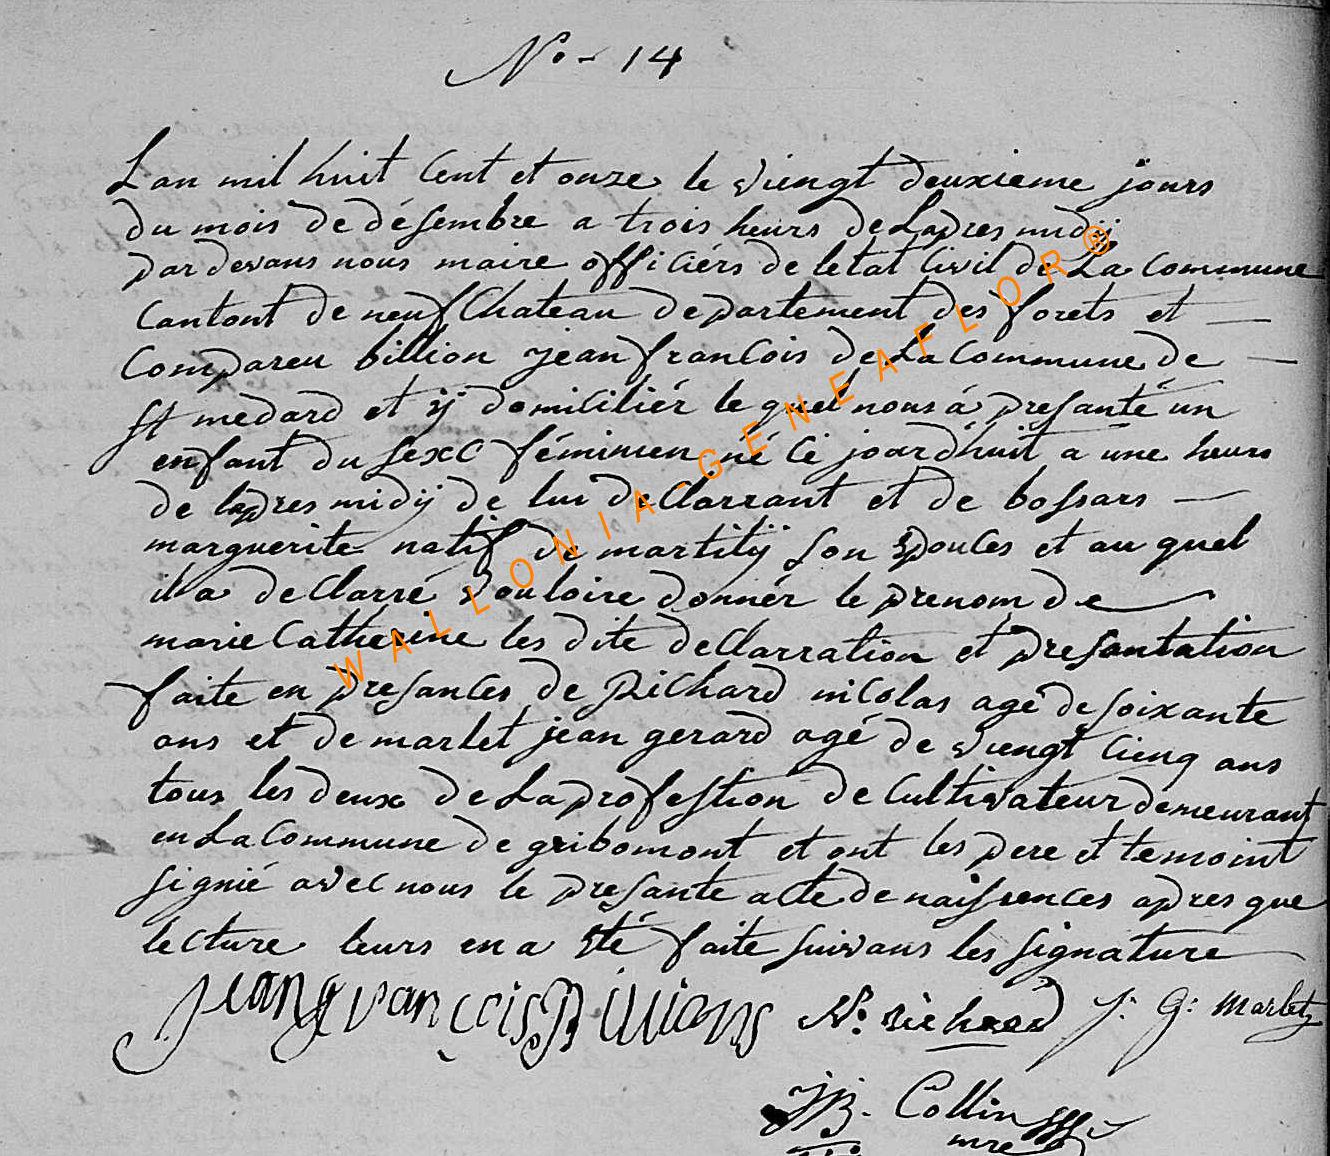 No - 14
Lan mil huit Cent et onze le viengt deuxieme jours
du mois de désembre a trois heurs de Lapres midij
par devans nous maire officiérs de letat Civil de La Commune
Cantont de neufChateau departement des forets et
Compareu billion jean francois de La Commune de
st medard et ij domiciliér le quel nous á presanté un
enfant du sexe féminien né Ce jourdhuit a une heurs
de lapres midij de lui deClarrant et de bossars
marguerite natif de martilij son Epouces et au quel
il a deClarré vouloire donnér le prenom de
marie Catherine les dite deClarration et presantation
faite en presances de Richard nicolas agé de soixante
ans et de marlet jean gerard agé de viengt Cienq ans
tous les deux de La profession de Cultivateur demeurant
en La Commune de gribomont et ont les pere et temoint
signié avec nous le presante acte de naissences apres que
lecture leurs en a Eté faite suivans les signature
jean francois Billions N: richard J: G: Marlet
JB. Collin
mre
WALLONIA-GENEAFLOR®